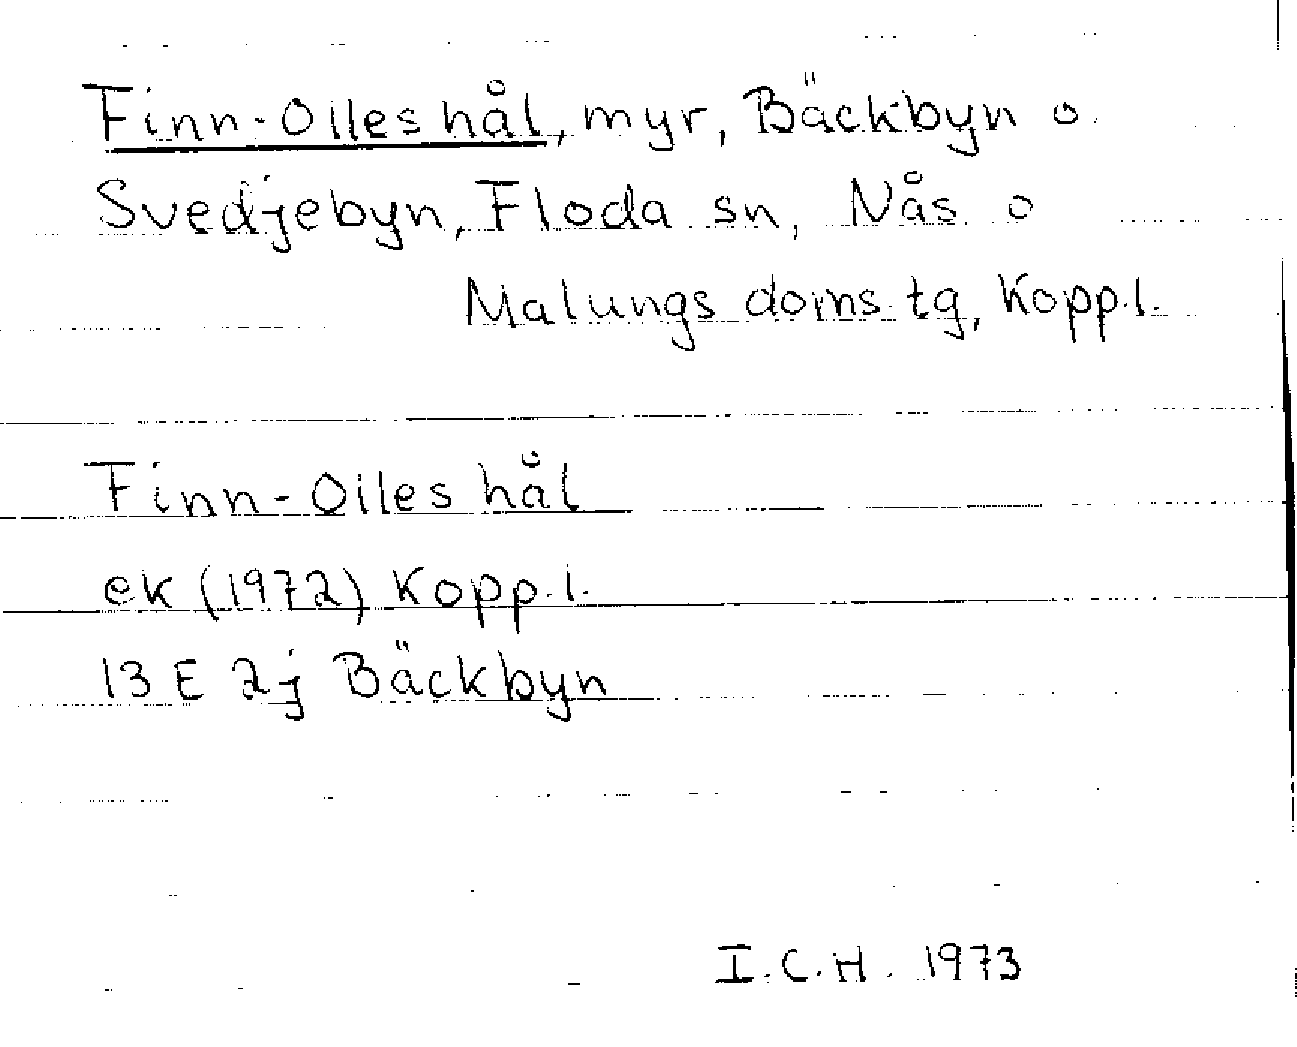 Finn-Olles hål, myr, Bäckbyn o.
Svedjebyn, Floda sn, Nås o
Malungs doms.tg, Kopp.l.
Finn-Olles hål
ek (1972) Kopp.l.
13 E 2j Bäckbyn
I.C.H. 1973